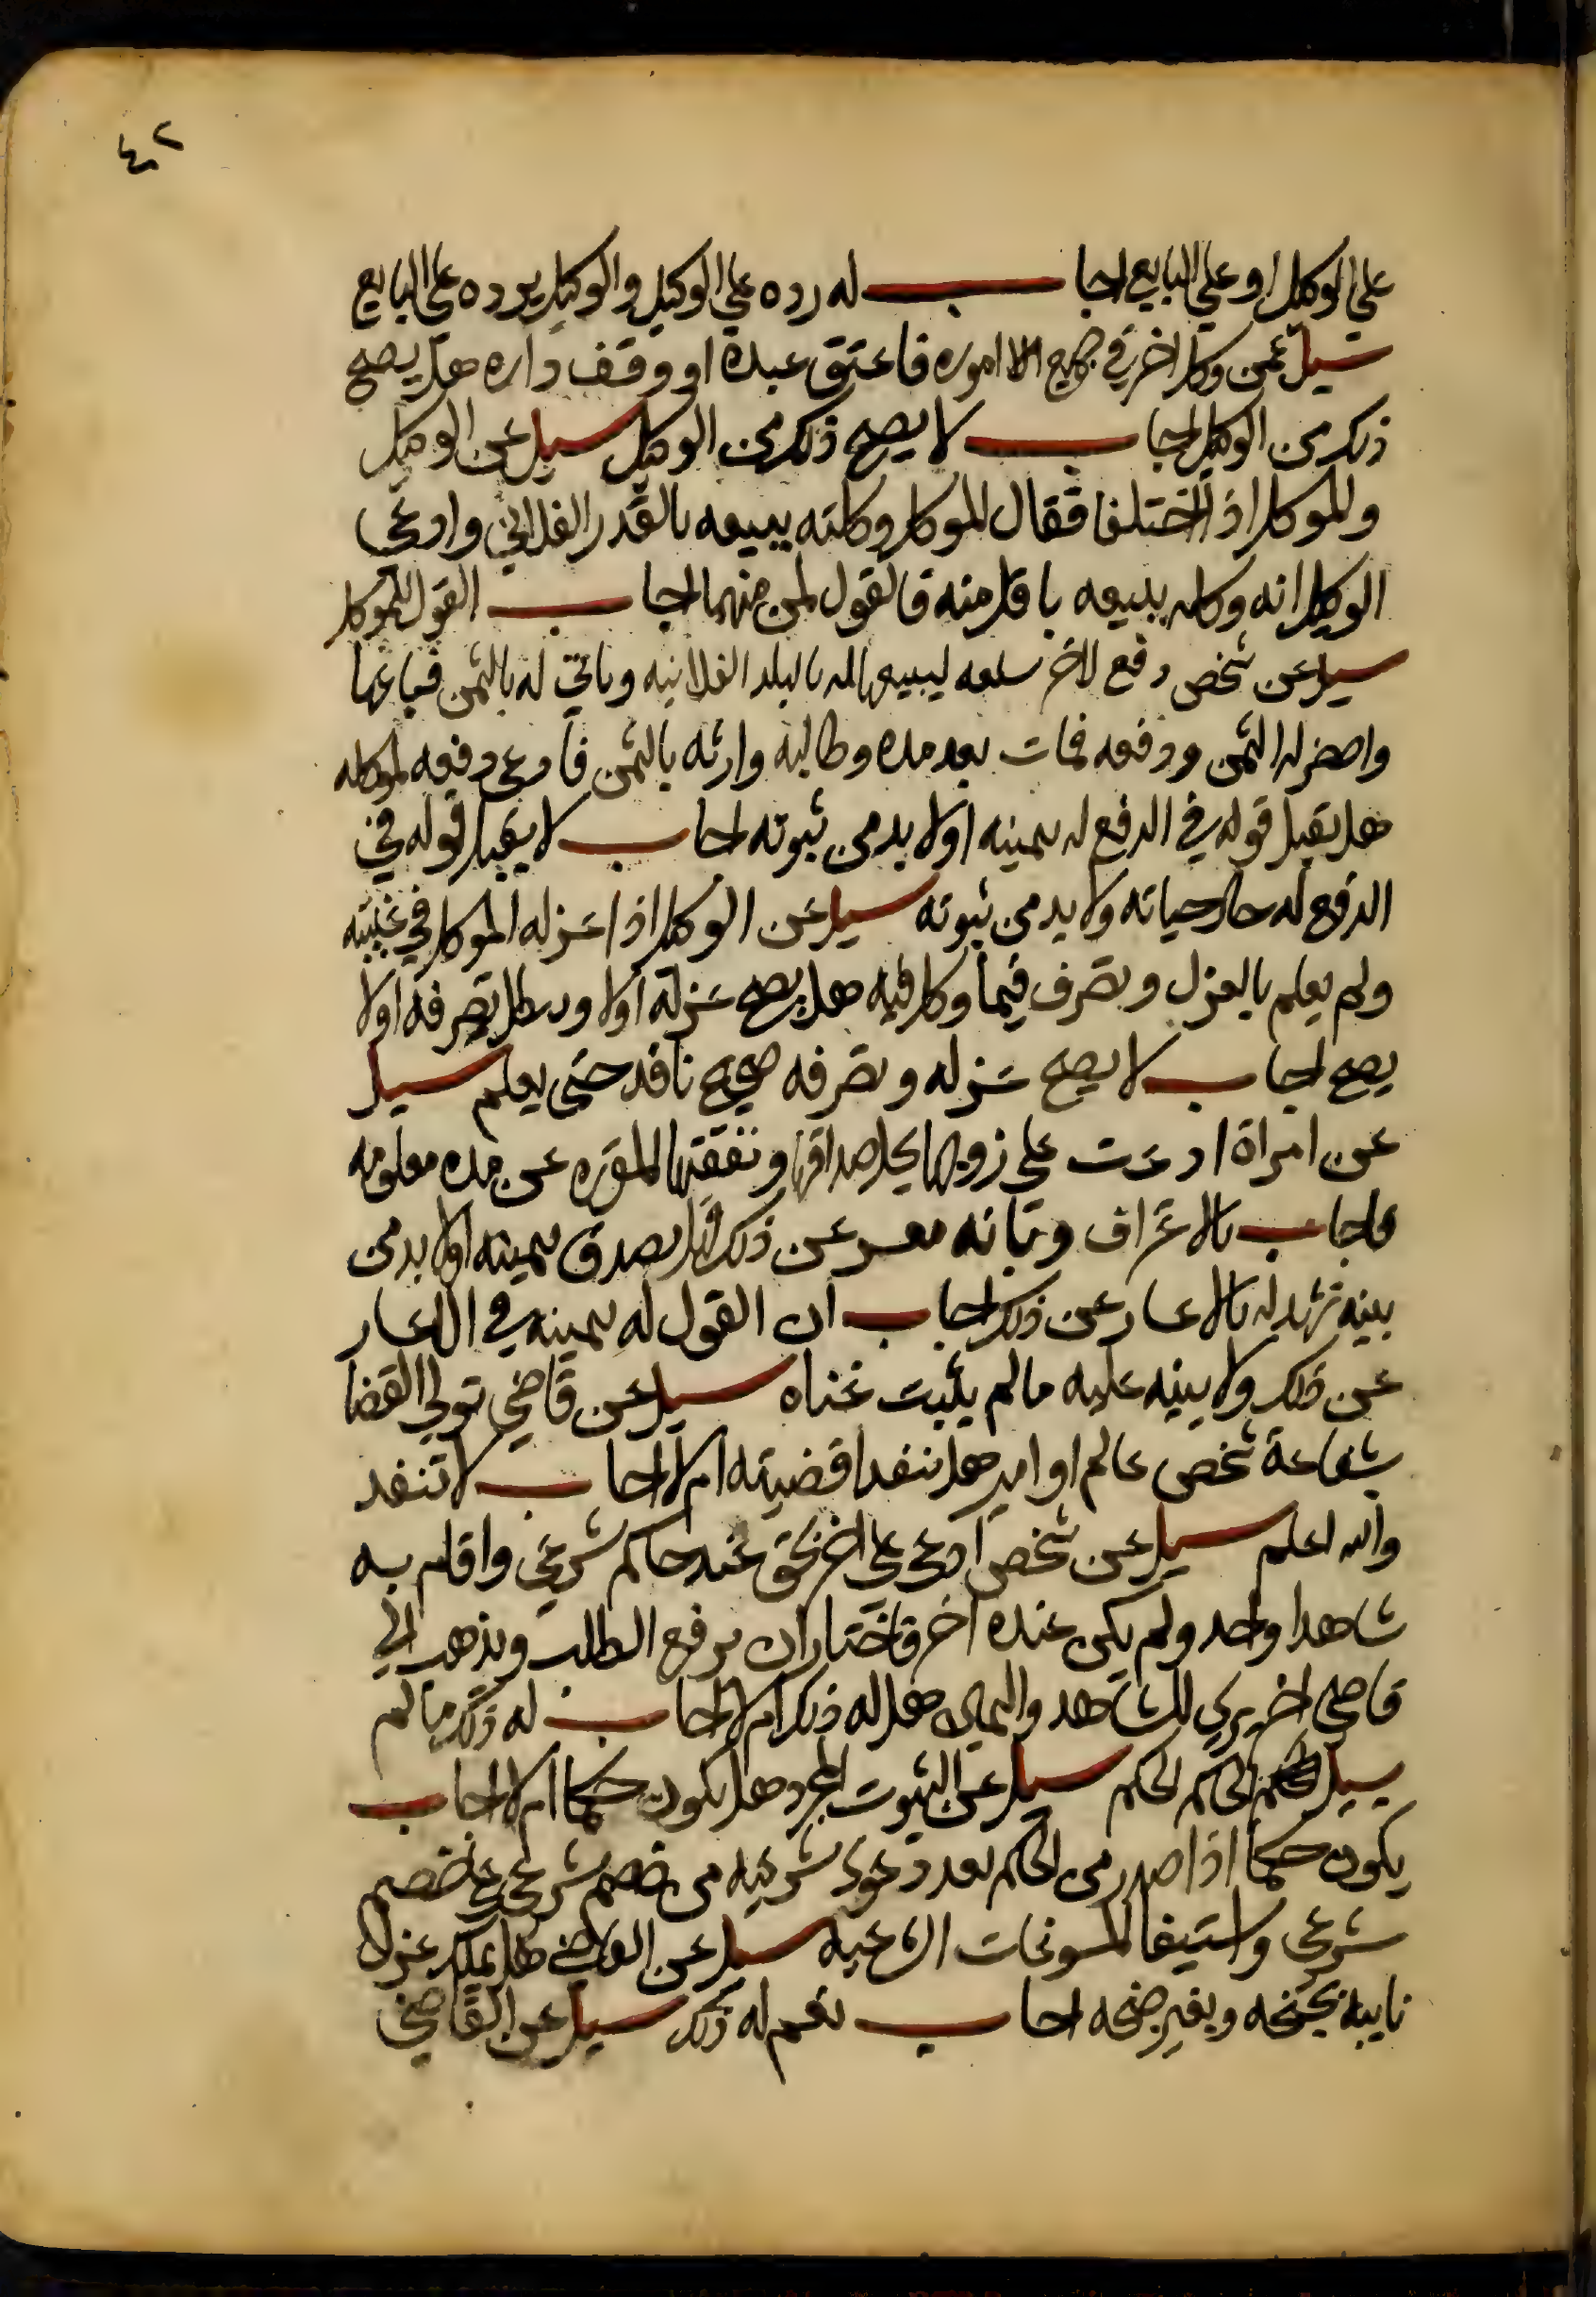 ٤٢
علي الوكيل او علي البايع اجاب له رده علي الوكيل والوكيل يرده علي البايع
سيل عمن وكل اخر في جميع اموره فاعتق عبده او وقف داره هل يصح
ذلك من الوكيل اجاب لا يصح ذلك من الوكيل سيل عن الوكيل
والموكل اذا اختلفا فقال الموكل وكلته يبيعه بالقدر الفلاني وادعي
الوكيل انه وكله ببيعه باقل منه فالقول لمن منهما اجاب القول للموكل
سيل عن شخص دفع لاخر سلعه ليبيعها له بالبلد الفلانيه وياتي له بالثمن فباعها
واحضر له الثمن ودفعه فمات بعد مده وطالبه وارثه بالثمن فادعي دفعه لموكله
هل يقبل قوله في الدفع له بيمينه او لا بد من ثبوته اجاب لا يقبل قوله في
الدفع له حال حياته ولا بد من ثبوته سيل عن الوكيل اذا عزله الموكل في غيبته
ولم يعلم بالعزل وتصرف فيما وكل فيه هل يصح عزله اولا ويبطل تصرفه اولا
يصح اجاب لا يصح عزله وتصرفه صحيح نافد حتي يعلم سيل
عن امراة ادعت علي زوجها بحال صداقها ونفقتها المقرره عن مده معلومه
فاجاب بالاعتراف وبانه معسر عن ذلك فهل يصدق بيمينه او لا بد من
بينه تشهد له بالاعسار عن ذلك اجاب ان القول له بيمينه في الاعسار
عن ذلك ولا بينه عليه مالم يثبت غناه سيل عن قاضي تولي القضا
بشفاعة شخص عالم او امير هل تنفد اقضيته ام لا اجاب لا تنفد
والله اعلم سيل عن شخص ادعي علي اخر بحق عند حاكم شرعي واقام به
شاهدا واحد ولم يكن عنده اخر فاختار ان يرفع الطلب ويذهب الي
قاضي اخر يري الشاهد واليمين هل له ذلك ام لا اجاب له ذلك مالم
يسيل الحاكم الحكم سيل عن الثبوت المجرد هل يكون حكما ام لا اجاب
يكون حكما اذا صدر من الحاكم بعد دعوي شرعيه من خصم شرعي علي خصم
شرعي واستيفا المسوغات الشرعيه سيل عن القاضي هل يملك عزل
نايبه بجنحه وبغير جنحه اجاب نعم له ذلك سيل عن القاضي